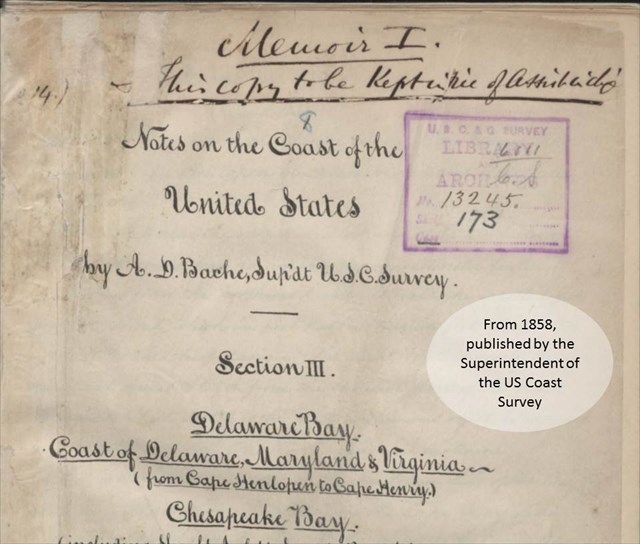 Memoir I.
14.) This copy to be Kept in of
8
Notes on the Coast of the
United States
by A. D. Bache, Sup'dt U.S.C. Survey.
U. S. C. & G. SURVEY
LIBRARY
AND
ARCHIVES
No. 13245.
173
Section III.
From 1858,
published by the
Superintendent of
the US Coast
Survey
Delaware Bay.
Coast of Delaware, Maryland & Virginia
(from Cape Henlopen to Cape Henry.)
Chesapeake Bay.